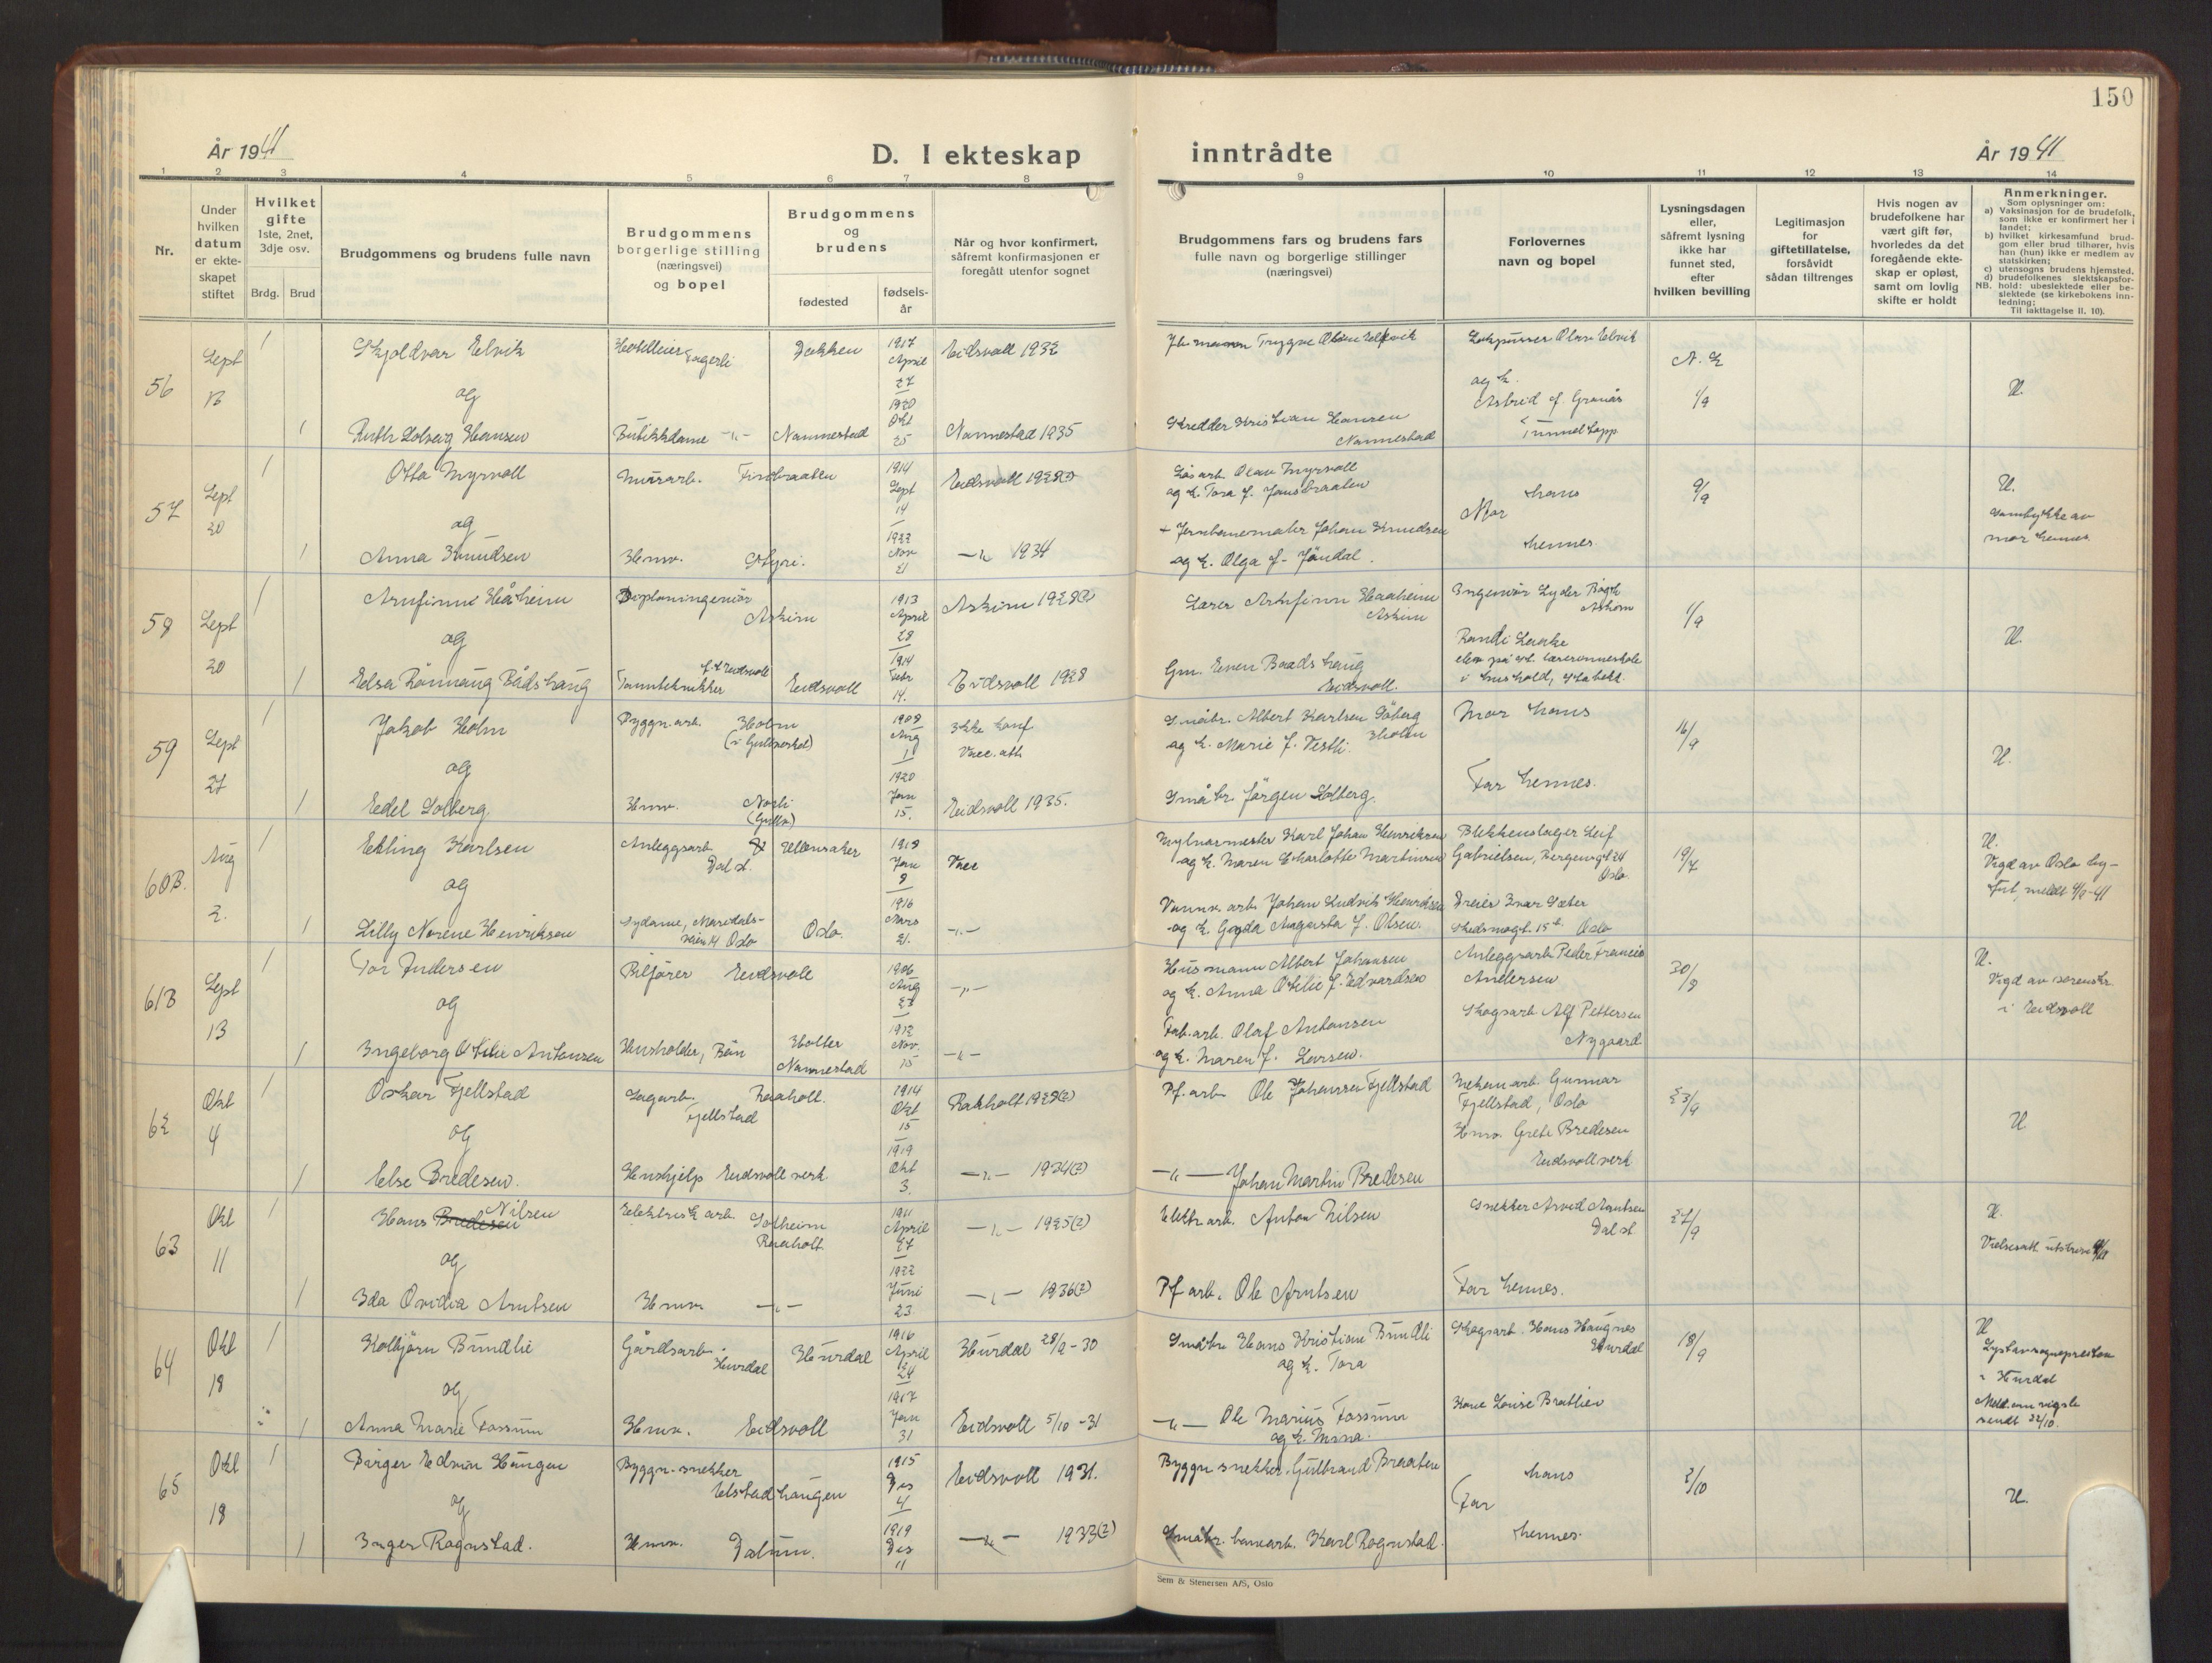 150
År 1941
D. I ekteskap
inntrådte
År 1941
1 2 3 4 5 6 7 8 9 10 11 12 13 14
Nr.
Under
hvilken
datum
er ekte-
skapet
stiftet
Hvilket
gifte
1ste, 2net,
3dje osv.
Brdg. Brud
Brudgommens og brudens fulle navn
Brudgommens
borgerlige stilling
(næringsvei)
og bopel
Brudgommens
og
brudens
fødested
fødsels-
år
Når og hvor konfirmert,
såfremt konfirmasjonen er
foregått utenfor sognet
Brudgommens fars og brudens fars
fulle navn og borgerlige stillinger
(næringsvei)
Forlovernes
navn og bopel
Lysningsdagen
eller,
såfremt lysning
ikke har
funnet sted,
efter
hvilken bevilling
Legitimasjon
for
giftetillatelse,
forsåvidt
sådan tiltrenges
Hvis nogen av
brudefolkene har
vært gift før,
hvorledes da det
foregående ekte-
skap er opløst,
samt om lovlig
skifte er holdt
Anmerkninger.
Som oplysninger om:
a) Vaksinasjon for de brudefolk,
som ikke er konfirmert her i
landet;
b) hvilket kirkesamfund brud-
gom eller brud tilhører, hvis
han (hun) ikke er medlem av
statskirken;
c) utensogns brudens hjemsted.
d) brudefolkenes slektskapsfor-
NB. hold: ubeslektede eller be-
slektede (se kirkebokens inn-
ledning;
Til iakttagelse II, 10).
56 Sept 13 1 Skjoldvar Elvik Dokken 1917 April 27 Eidsvoll 1932 Trygve Olsen Elvik Olav Elvik
og
Astrid f. Granås
1/9 U.
1 Ruth Solveig Hansen Butikkdame -"- Nannestad 1920 Okt 25 Nannestad 1935 Skredder Kristian Hansen
Nannestad
57 Sept 20 1 Otto Myrvoll Murarb. Finnbraaten 1914 Sept 14 Eidsvoll 1928(?) Løsarb. Olav Myrvoll
og k. Tora f. Jansbraaten
hans
Mor
hennes
9/9 U.
Samtykke av
mor hennes
og
1 Anna Knudsen Hmv. Styri. 1922 Nov 21 -"- 1934 + Jernbanemaler Johan Knudsen
og k. Olga f. Jöndal.
58 Sept 20 1 Arnfinn Håheim Diplomingeniør
Askim 1913 April 28 Askim 1928(?) Lærer Arnfinn Haaheim
Askim
Ingeniør Lyder Bøgh
Askim
1/9 U.
og
Randi Laake
elev på st. lærerinneskole
i hushold, Stabekk.
1 Elsa Rönnaug Bådshaug Tannteknikker
f. t. Eidsvoll Eidsvoll 1914 Febr 14. Eidsvoll 1928 Gm. Even Baadshaug
Eidsvoll.
59 Sept 27 1 Jakob Holm Byggn.arb. Holm
(i Gullverket) 1909 Aug 1 Ikke konf
Vacc. att Småbr. Albert Karlsen Söberg
og k. Marie f. Vestli. Holm
Mor hans
16/9 U.
og
1 Edel Solberg. Hmv. Nosli
(Gullv.) 1920 Jan 15. Eidsvoll 1935. Småbr. Jørgen Solberg. Far hennes.
60B. Aug 2. 1 Erling Karlsen Anleggsarb
Dal st. Ullensaker 1919 Jan 9 Vacc Karl Johan Henriksen
og k. Maren Charlotte Martinsen
Blikkenslager Leif
Gabrielsen, Bergensgt 24
Oslo.
19/7 U.
Vigd av Oslo by-
fut, meldt 4/9-41
og
1 Lilly Norene Henriksen Sydame, Maridals-
veien 14 Oslo Oslo. 1916 Mars 21. -"- Johan Ludvik Henriksen
og k. Gyda Augusta f. Olsen.
Dreier Ivar Sæter
Skedsmogt. 15 Oslo
61B Sept 13 1 Tor Andersen Bilfører Eidsvoll 1906 Aug 27 -"- Husmann Albert Johansen
og k. Anna Otilie f. Edvardsen
Anleggsarb. Peder Francis
Andersen
30/8 U.
Vigd av sorenskr.
i Eidsvoll
og
1 Ingeborg Otilie Antonsen Husholder, Bön Holter
Nannestad 1912 Nov. 15 -"- Fab.arb. Olaf Antonsen
og k. Maren f. Larsen.
Skogsarb. Alf Pettersen
Nygaard
62 Okt 4 1 Oskar Fjellstad Sagarb. Raaholt.
Fjellstad 1914 Okt 15 Raaholt 1929(?) Pf. arb. Ole Johansen Fjellstad Mekan.arb. Gunnar
Fjellstad, Oslo
23/9 U
og
1 Else Bredesen. Hushjelp Eidsvoll verk 1919 Okt 3. -"- 1934(?) -"- Johan Martin Bredesen Hmv. Grete Bredesen
Eidsvoll verk
63 Okt 11 1 Hans Bredesen Nilsen Elektrisk arb. Solheim
Raaholt. 1911 April 27 -"- 1925(?) Elektr.arb. Anton Nilsen Snekker Arvid Arntsen
Dal st
27/9 U.
og
1 Ida Ovidia Arntsen Hmv -"- 1922 Juni 23 -"- 1936(?) Pf arb. Ole Arntsen Far hennes.
64 Okt 18 1 Kolbjørn Bundlie Gårdsarb.
Hurdal Hurdal 1916 April 24 Hurdal 28/9-30 Småbr Hans Kristian Bundli
og k. Tora
Skogsarb. Hans Haugnes
Hurdal
18/9 U
Lyst av sogneprester
i Hurdal
Meld. om vigsle
sendt 22/10.
og
1 Anna Marie Fossum Hmv. Eidsvoll 1917 Jan 31 Eidsvoll 5/10-31 -"- Ole Marius Fossum
og k. Mina.
65 Okt 18 1 Birger Edvin Haugen Byggn. snekker
Elstadhaugen 1915 Des 4 Eidsvoll 1931. Byggn snekker. Gulbrand Braaten hans
Far
hennes.
2/10 U.
og
1 Inger Rognstad. Hmv. Dalum. 1919 Des 11 -"- 1933(?) Småbr. banearb. Karl Rognstad.
Sem & Stenersen A/S, Oslo